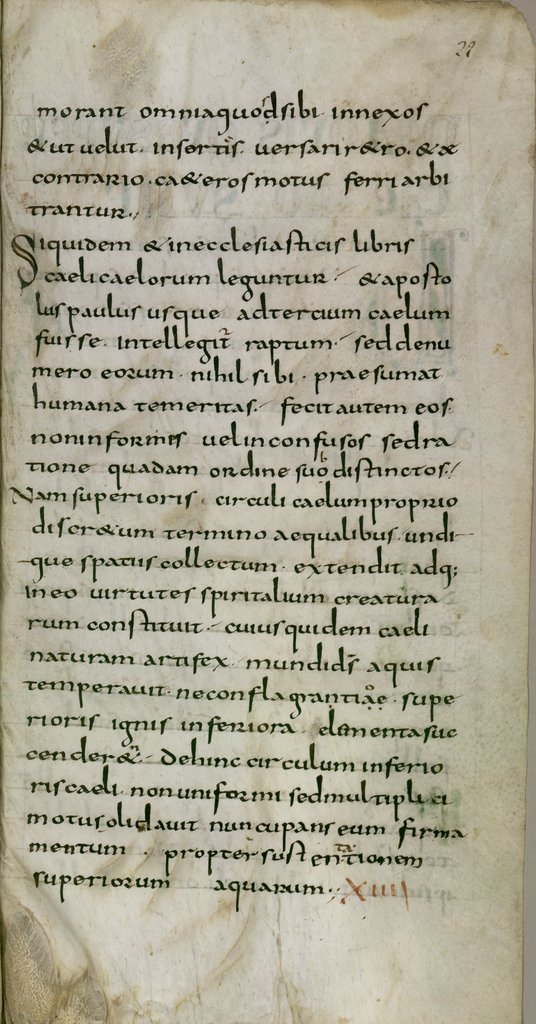 22
morant omniaquodsibi innexos
&ut velut. insertis. versarir&ro. &ae
contrario. ca&eros motus ferri arbi
trantur.,
Siquidem & inecclesiasticis libris
caelicaelorum leguntur. &aposto
lus paulus usque adtercium caelum
fuisse. intellegit raptum. seddenu
mero eorum. nihil sibi. praesumat
humana temeritas. fecit autem eos.
noninformes velinconfusos sedra
tione quadam ordine suo distinctos.
Nam superioris. circuli caelumproprio
discr&um termino aequalibus. undi
que spatiis collectum. extendit adq;
ineo virtutes spiritalium creatura
rum constituit. cuiusquidem caeli
naturam artifex. mundi ds aquis
temperavit. neconflagrantiae. supe
rioris ignis inferiora. elementasuc
cender&. dehinc circulum inferio
ris caeli. nonuniformi sedmultiplici
motusolidavit nuncupans eum firma
mentum. propter sustentationem
superiorum aquarum. XIIII